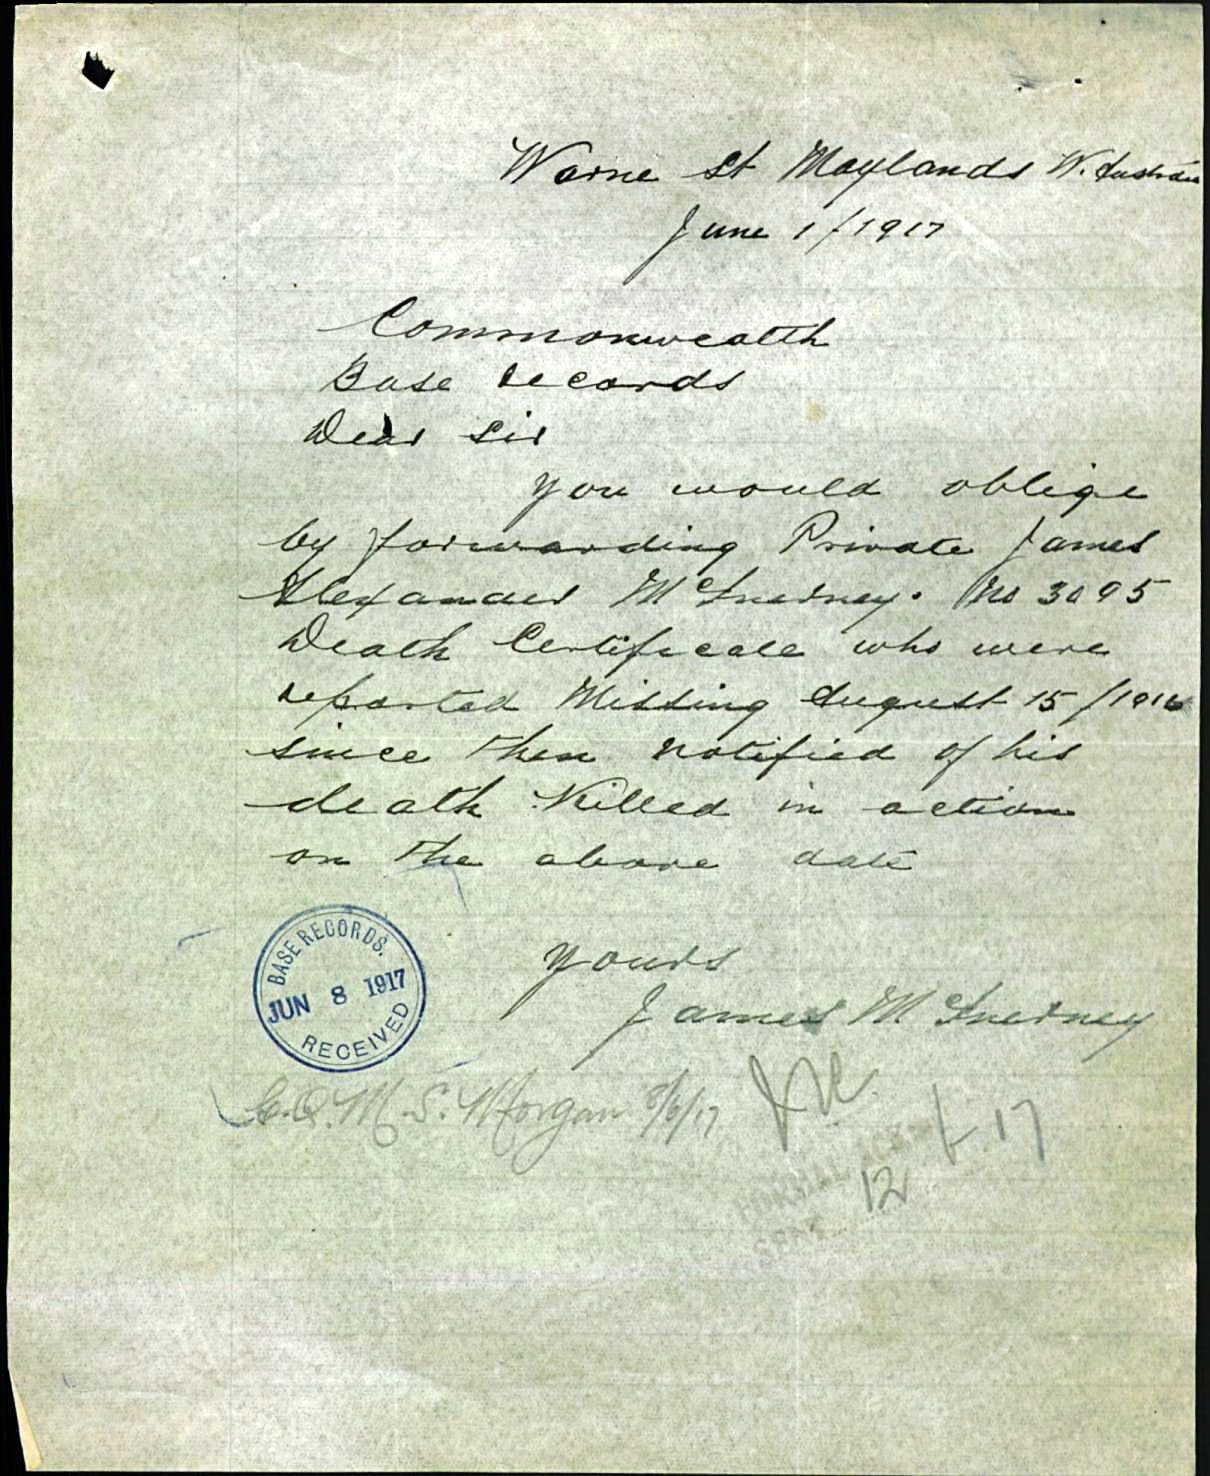 Warne St Maylands W. Australia
June 1/1917
Commonwealth
Base Records
Dear Sir
you would oblige
by forwarding Private James
Alexander McInerney. No 3095
Death Certificate who were
reported Missing August 15/1916
since then notified of his
death Killed in action
on the above date
yours
James McInerney
BASE RECORDS.
JUN 8 1917
RECEIVED
C.Q.M.S. Morgan 8/6/17
FORMAL ACK
SENT
12 6.17